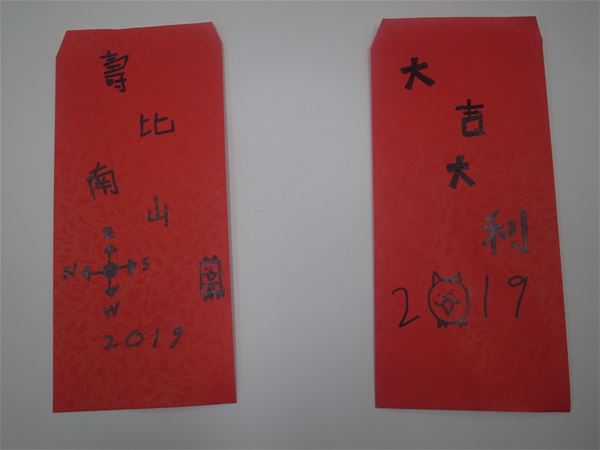 壽
比
南
山
E
N S
W
2019
大
吉
大
利
2019